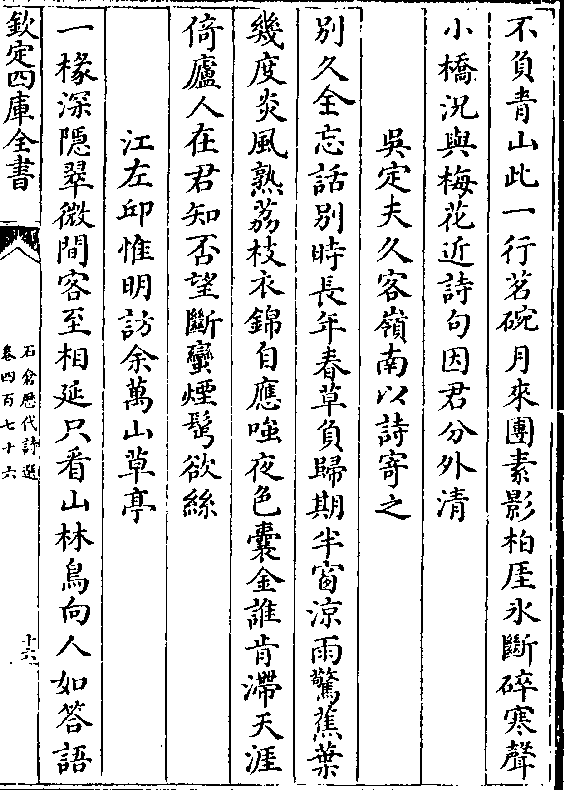 不負青山此一行茗碗月來團素影柏厓氷斷碎寒聲
小橋況與梅花近詩句因君分外清
吳定夫久客嶺南以詩寄之
別久全忘話別時長年春草負歸期半窗涼雨驚蕉葉
幾度炎風熟荔枝衣錦自應嗤夜色囊金誰肯滯天涯
倚廬人在君知否望斷蠻煙鬂欲絲
江左邱惟明訪余萬山草亭
一椽深隱翠微間客至相延只看山林鳥向人如答語
欽定四庫全書
石倉歴代詩選
卷四百七十六
十六